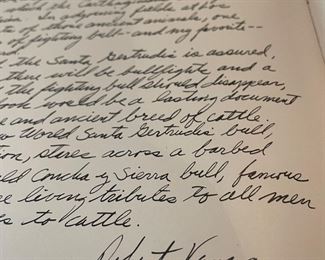 which the Carthag
In adjoining fields at five
of those ancient animals, one
of fighting bull - and my favorite --
the Santa Gertrudis is assured,
there will be bullfights and a
the fighting bull should disappear,
book would be a lasting document
and ancient breed of cattle.
World Santa Gertrudis bull,
tion, stares across a barbed
Concha y Sierra bull, famous
living tributes to all men
to cattle.